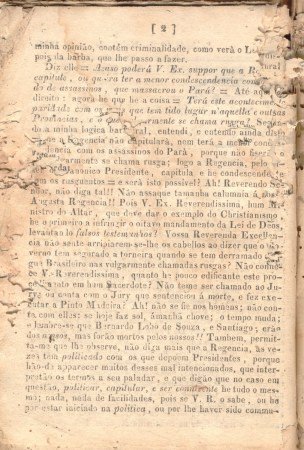 [ 2 ]
minha opinião, contêm criminalidade, como verá o
pois da barba, que lhe passo a fazer.
Diz elle = Acaso poderá V. Ex. suppor que a R
capitulo, ou queira ter a menor condescendencia com
do de assassinos, que massacrou o Pará? = Até aqu
dicuto: agora he que a cousa = Terá este acontecime
paridade com os que tem tido lugar n'aquella e outras
Provincias, e o que armente se chama rusga?
do a minha logica bar ral, entendi, e entendo ainda
que a Regencia não capitulará, nem terá a menor condes
cendencia com os assassinos do Pará, porque não
armente se chama rusga: logo a Regencia, pelo
anonico Presidente, capitula e he condescende
s rusguentos = e será isto possivel? Ah! Reverendo Se
nhor, não diga tal!! Não assaque tamanha calumnia á nos
Augusta Regencia!! Pois V. Ex. Reverendissima, hum Mi
nistro do Altar, que deve dar o exemplo do Christianismo
he o primeiro a infringir o oitavo mandamento da Lei de Deos,
levantando falsos testemunhos? Vossa Reverenda Excellen
cia não sente arripiarem-se-lhe os cabellos ao dizer que o
verno tem segurado a torneira quando se tem derramado
gue Brasileiro nas vulgarmente chamadas rusgas? Não
e V. Reverendissima, quanto he pouco edificante este pro
cimento em hum Sacerdote? Não teme ser chamado ao Ju
ry ou conta com o Jury que sentenciou á morte, e fez exe
cutar a Pinto Madeira? Ah! não se fie nos homens; não con
ta com elles: se hoje faz sol, âmanhã chove; o tempo muda;
e lembre-se que Bernardo Lobo de Souza, e Santiago; erão
dos nossos, mas forão mortos pelos nossos!! Tambem, permit
ta-me que lhe observe, não diga mais que a Regencia, ás ve
zes tem politicado com os que depoem Presidentes, porque
hão de apparecer muitos desses mal intencionados, que inter
pretão os termos a seu paladar, e que digão que no caso em
questão, politicar, capitular, e ser condrente he tudo o mes
mo; nada, nada de facilidades, pois se V. R. o sabe, ou he
por estar iniciado na politica, ou por lhe haver sido commu-